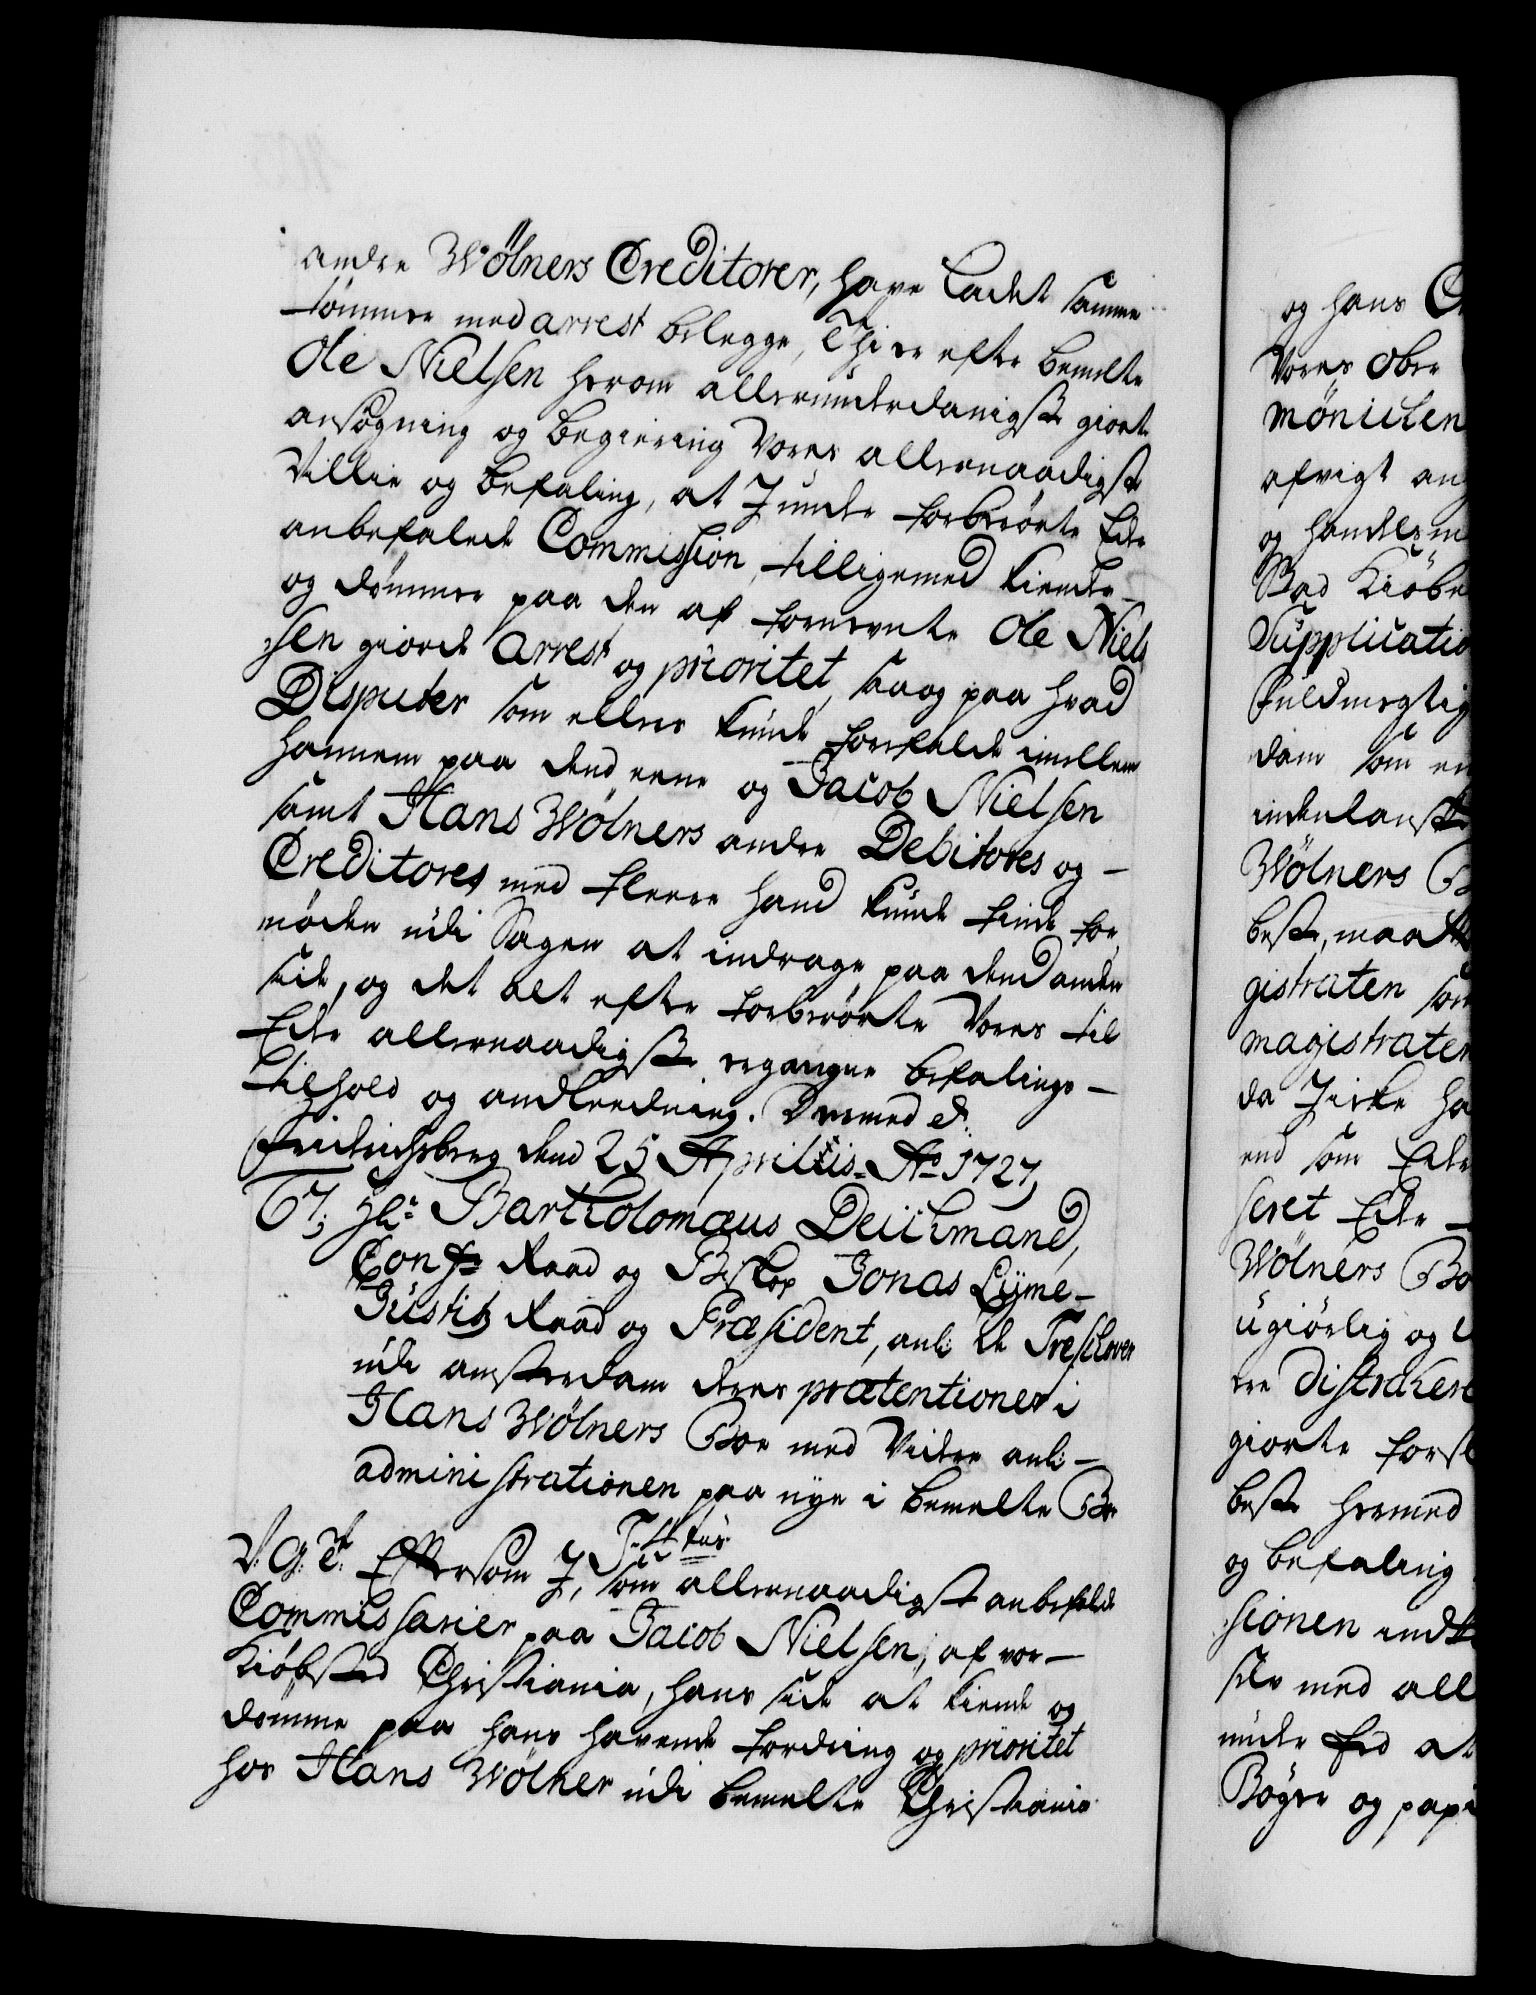 andre Wölners Creditorer, have ladet samme
tömmer med arrest belegge, Thi er efter bemelte
Ole Nielsen herom allerunderdanigst giorte
ansögning og begiering Vores allernaadigste
Villie og befaling, at I under forberörte Eder
anbefalede Commission, tilligemed kiender
og dömmer paa den af fornevnte Ole Niel
sen giorde arrest og prioritet, saa og paa hvad
Disputer som ellers kunde forefalde imellem
hannem paa dend eene og Jacob Nielsen
samt Hans Wölners andre Debitores og -
Creditores med fleere hand kunde finde for
nöden udi Sagen at indrage paa dend anden
side, og det alt efter forberörte Vores til
Eder allernaadigste ergangne befalings -
tilhold og andleedning. Dermed etc.
Friderichsberg dend 25 Aprilis Ao 1727,
67, Hr. Bartholomæus Deichmand,
Conf: Raad og Biskop Jonas Lyme -
Justitz Raad og Præsident, anl: de Treslover
udi amsterdam deres prætentioner i
Hans Wölners Boe med Videre anl: -
administrationen paa nye i bemelte Bo
Tittus
V: G: T: Eftersom I, som allernaadigst anbefalede
Commissarier paa Jacob Nielsen, af vor -
Kiöbsted Christiania, hans side at kiende og
domme paa hans havende fordring og prioritet
hos Hans Wölner udi bemelte Christiania
og hans
Vores Ober
afvigt
og handels
Bad Kiöbe
Supplicatio
fuldmegtig
dam som
indenlansk
Wölners
beste, maatte
gistraten
magistraten
da Jirke
end som Eder
seret Eder
Wölners Bo
ugiörlig og
distrahere
giorte
beste hermed
og befaling
sionen
selv med all
under Eed at
Bøger og papi